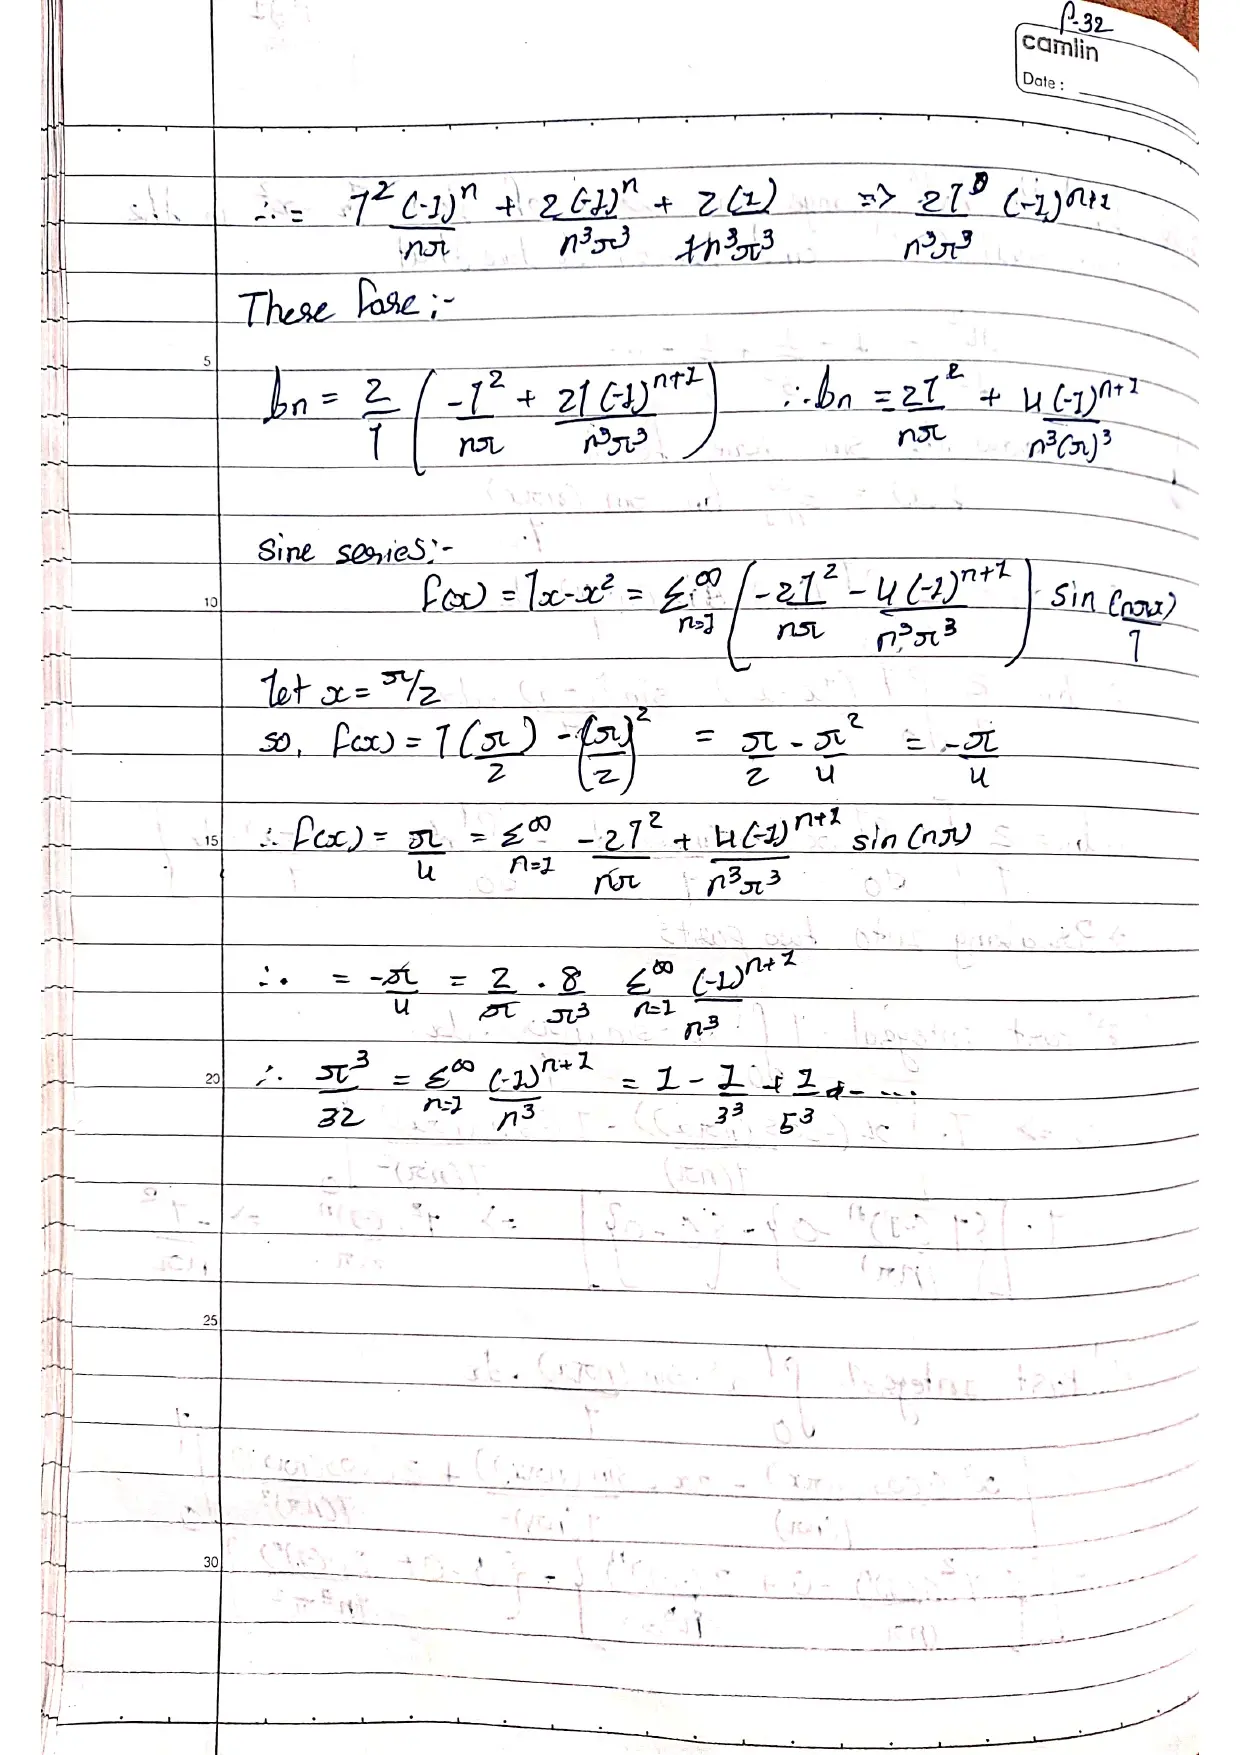 P-32
camlin
Date :
∴ = l² (-1)ⁿ/nπ + 2(-1)ⁿ/n³π³ + 2(1)/+n³π³ => 2l³/n³π³ (-1)ⁿ⁺¹
These fore :-
5
bn = 2/l ( -l²/nπ + 2l(-1)ⁿ⁺¹/n³π³ ) ∴ bn = 2l²/nπ + 4(-1)ⁿ⁺¹/n³(π)³
Sine series:-
10
f(x) = lx-x² = Σ∞ n=1 ( -2l²/nπ - 4(-1)ⁿ⁺¹/n³π³ ) sin (nπx)/l
let x = π/2
so, f(x) = l(π/2) - (π/2)² = π/2 - π²/4 = -π/4
15
∴ f(x) = π/4 = Σ∞ n=1 -2l²/nπ + 4(-1)ⁿ⁺¹/n³π³ sin (nπ)
∴ = -π/4 = 2/π . 8/π³ Σ∞ n=1 (-1)ⁿ⁺¹/n³
20
∴ π³/32 = Σ∞ n=1 (-1)ⁿ⁺¹/n³ = 1 - 1/3³ + 1/5³ + - ...
25
30